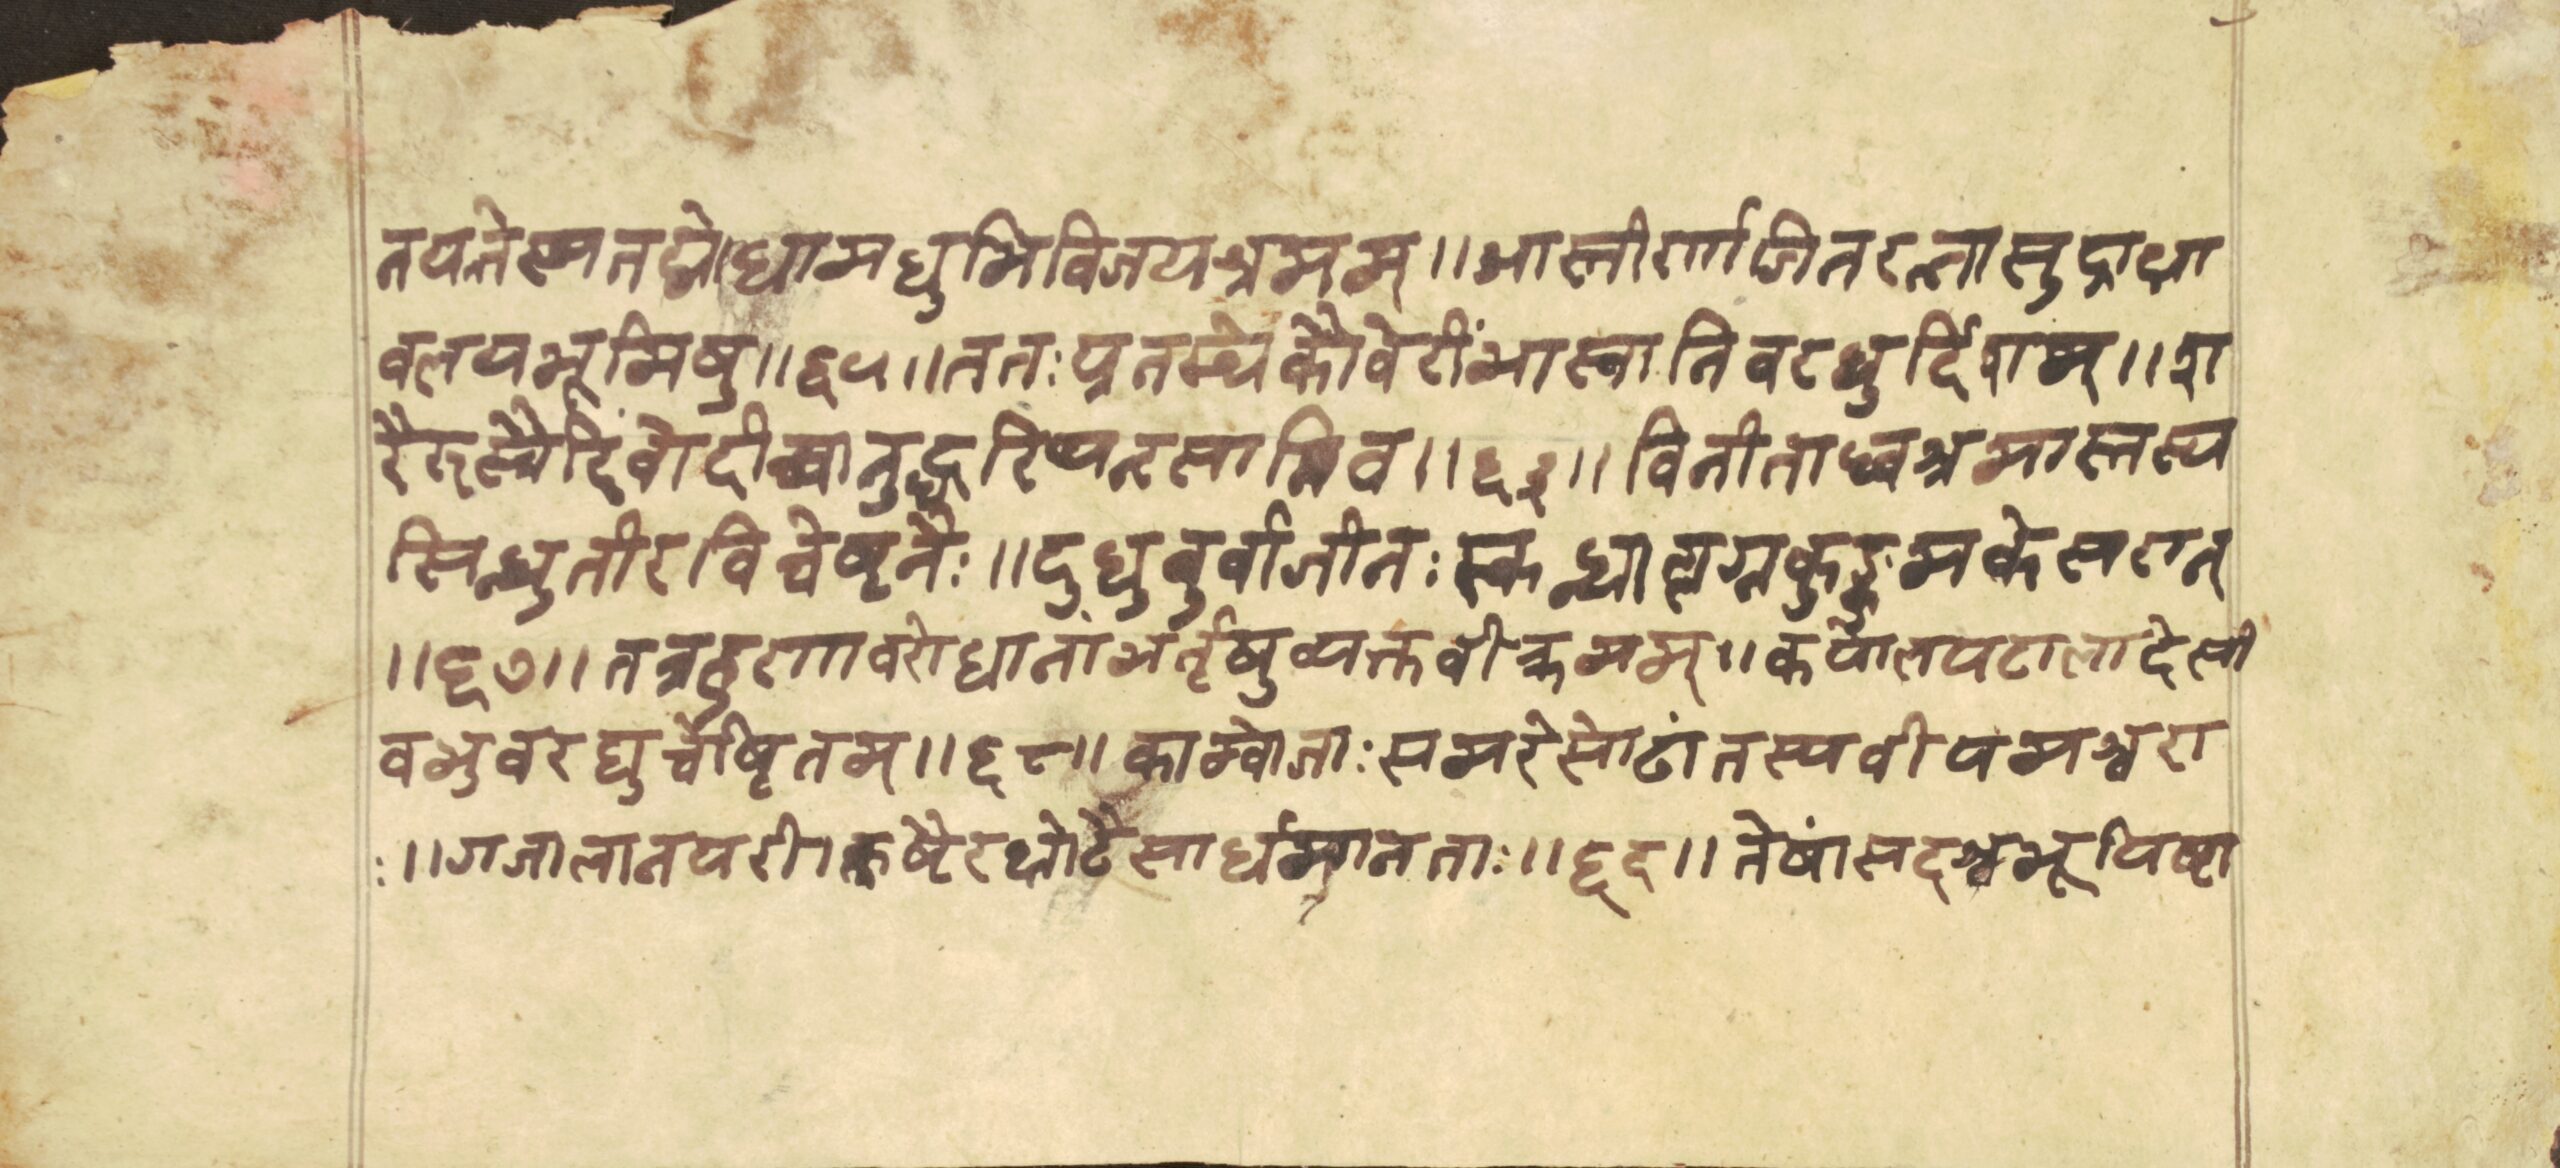 नयन्तेस्मतद्योधामधुभिविजयश्रमम्॥आस्तीर्णाजिनरत्नासुद्राक्षा
वलयभूमिषु॥६५॥ततःप्रतस्थेकौवेरींभास्वानिवरघुर्दिशम्॥श
रैरुस्त्रैरिंवोदीच्यानुद्धरिष्यन्रसानिव॥६६॥विनीताध्वश्रमास्तस्य
सिन्धुतीरविचेष्टनैः॥दुधुवुर्वाजीनःस्कन्धाल्लग्नकुङ्कुमकेसरान्
॥६७॥तत्रहूणावरोधानांभर्तृषुव्यक्तवीक्रमम्॥कपोलपटालादेसी
वभुवरघुचेष्टितम्॥६८॥काम्वोजाःसमरेसोढांतस्यवीयमश्वरा
ः॥गजालानपरीक्लिष्टैरक्षोटैसार्धमानताः॥६९॥तेषांसदश्वभूयिष्टा